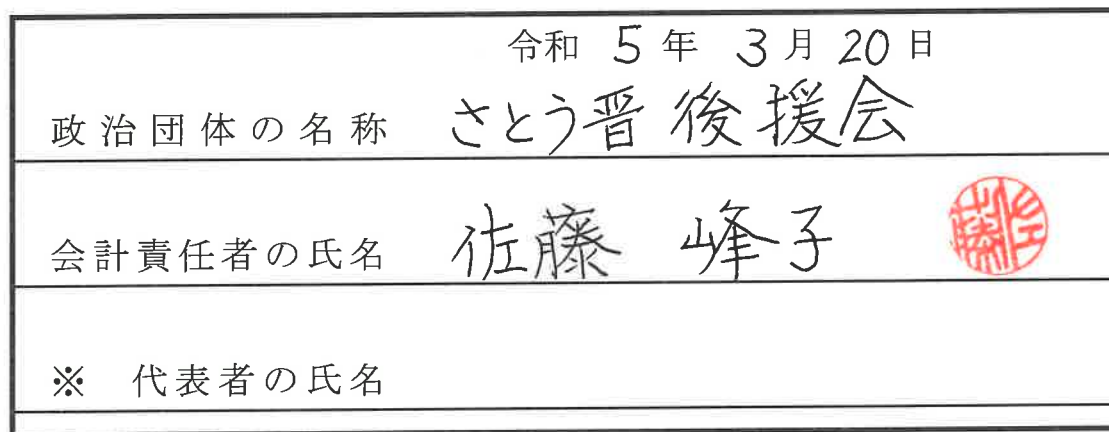 令和 5 年 3 月 20 日
政治団体の名称 さとう晋後援会
会計責任者の氏名 佐藤 峰子 佐藤
※ 代表者の氏名